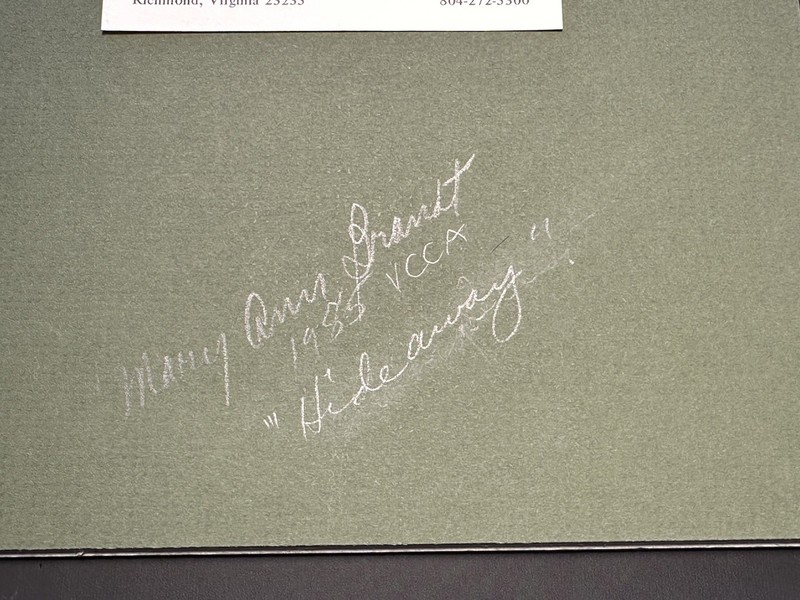 Richmond, Virginia 23235 804-272-5500
Mary Ann Brandt
1985 VCCA
"Hideaway"